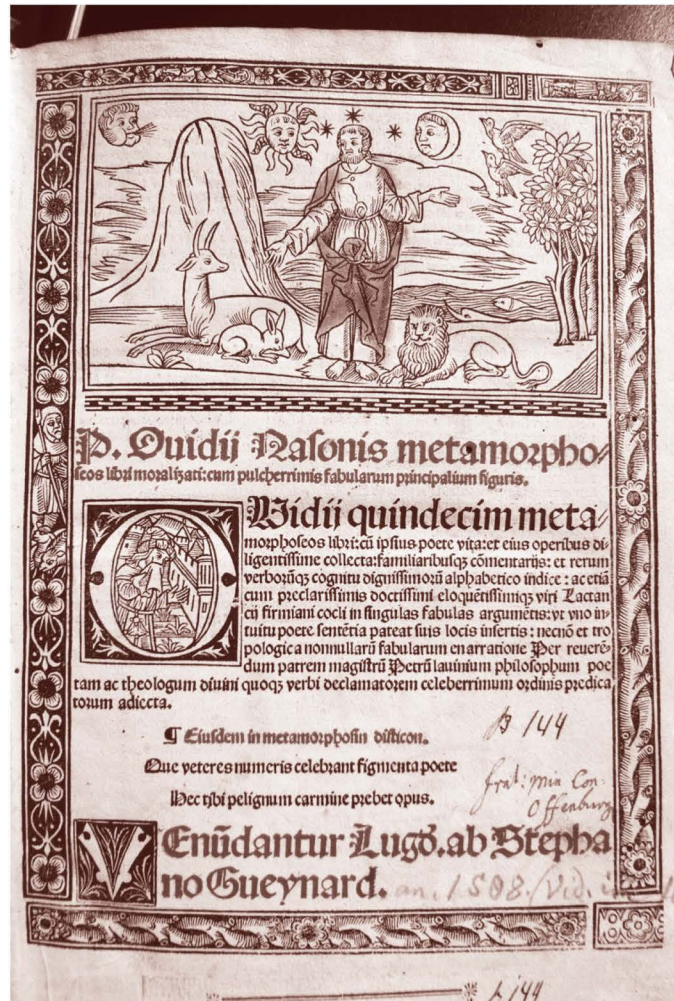 P. Ouidij Nasonis metamorpho⸗
seos libri moralizati: cum pulcherrimis fabularum principalium figuris.
OUidij quindecim meta⸗
morphoseos libri: cū ipsius poete vita: et eius operibus di
ligentissime collecta: familiaribusqꝫ cōmentarijs: et rerum
verborūqꝫ cognitu dignissimorū alphabetico indice: ac etiā
cum preclarissimis doctissimi eloquētissimiqꝫ viri Lactan
cij firmiani cocli in singulas fabulas argumētis: vt vno in⸗
tuitu poete sentētia pateat suis locis insertis: necnō et tro
pologica nonnullarū fabularum enarratione Per reuerē⸗
dum patrem magistrū Petrū lauinium philosophum poe
tam ac theologum diuini quoqꝫ verbi declamatorem celeberrimum ordinis predica
torum adiecta.
¶ Eiusdem in metamorphosin disticon.
Que veteres numeris celebrant figmenta poete
Hec tibi pelignum carmine prebet opus.
B 144
frat: Min Con.
Offenburg
VEnūdantur Lugd. ab Stepha
no Gueynard. an. 1508. (vid.
144